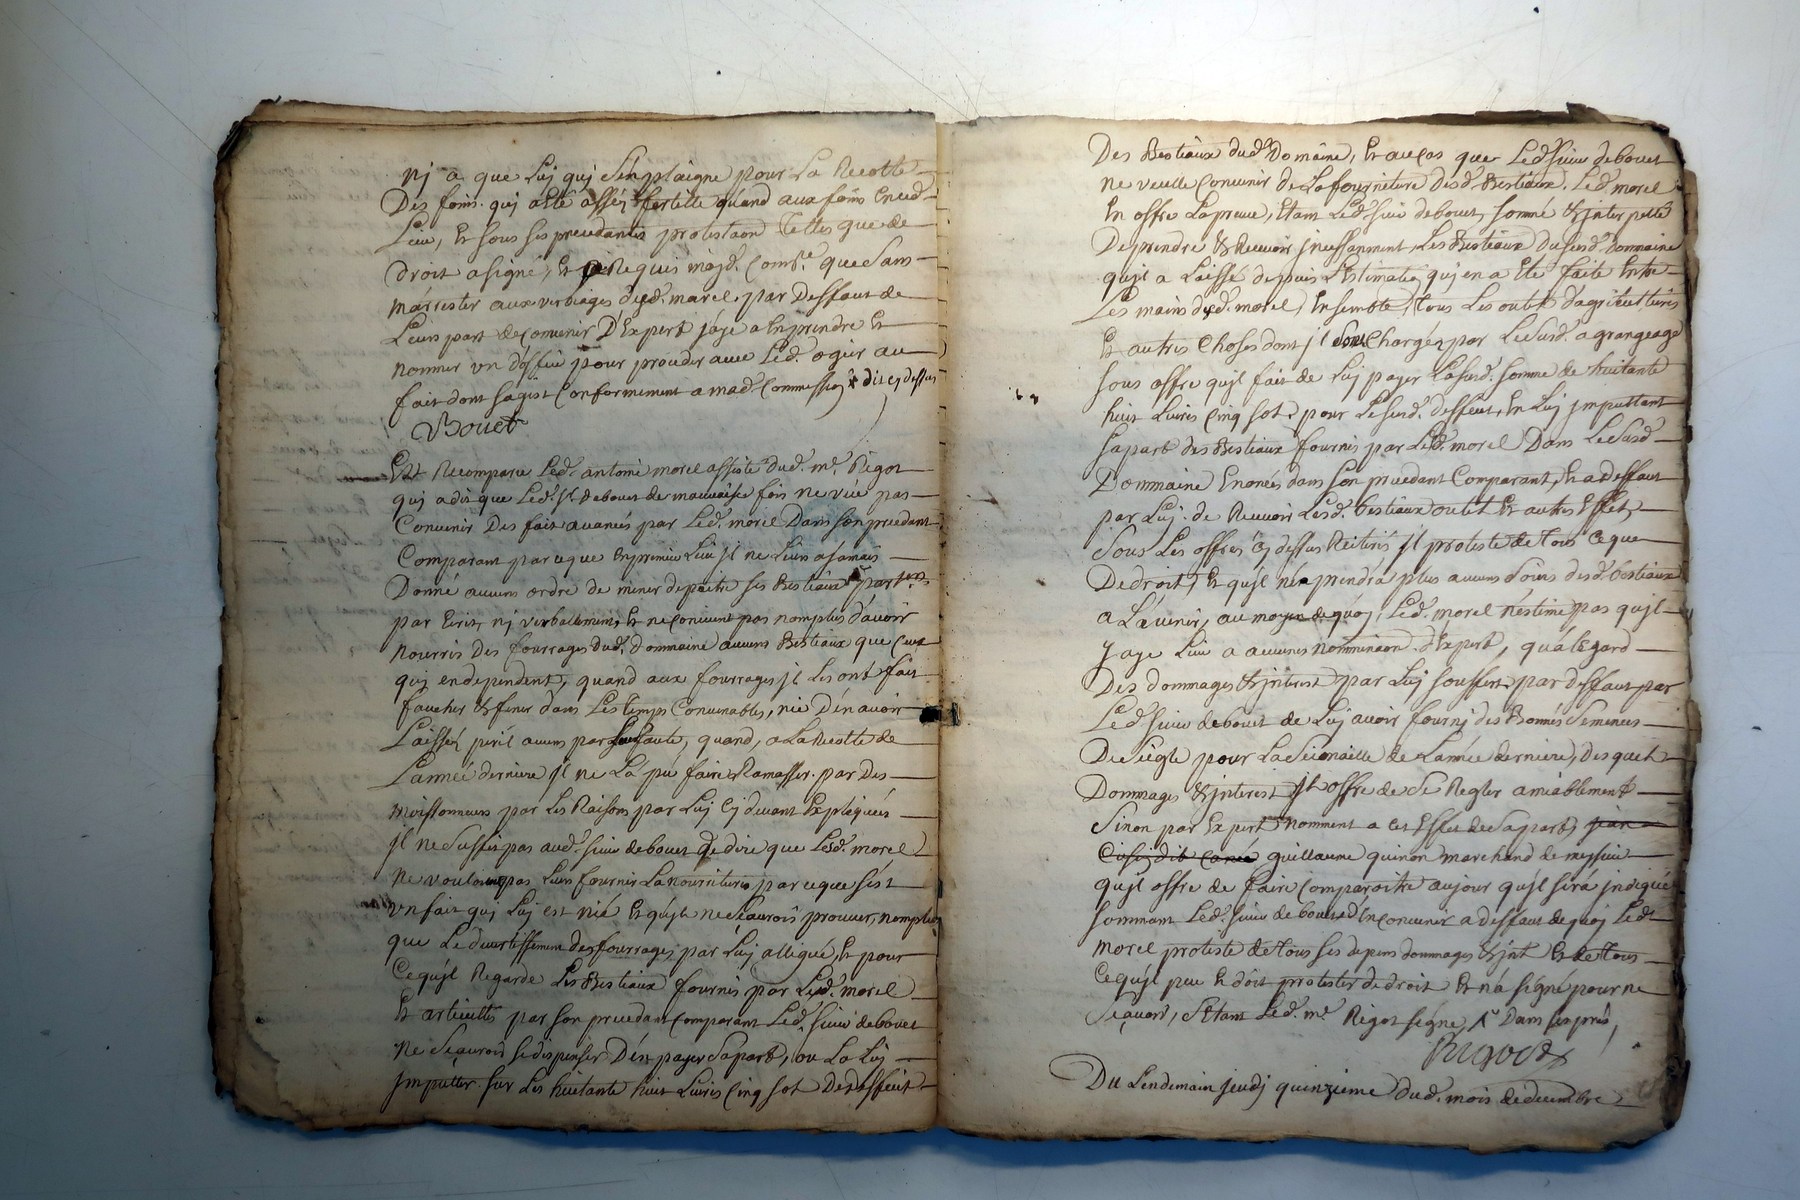 ny a que Luy quy S'enplaigne pour La Recolte
Des foins quy a été assés fertille quand aux foins en ced.
Lieu, Et sous ses precedantes protestaon Telles que de
droit a signé, Et Requis mojd. Comre. que Sans
m'arrester aux verbiages dud. morel par Deffaut de
Leurs part de Convenir D'Expert j'aye a En prendre Et
nommer un d'office pour proceder avec Led. ogier au
fait dont s'agist Conformement a mad. Commission dit cy dessus
Bouet
Est Recomparu Led. antoine morel assisté dud. me. Rigot
quy a dit que Led. Sr. debouet de mauvaise fois ne veut pas
Convenir Des fait avancés par Led. morel Dans son precedant
Comparant parceque En premier Lieu Il ne Leurs a Jamais
Donné aucuns ordre de mener depaitre ses Bestiaux
par Ecrit, nj verballement, Et ne convient pas nomplus d'avoir
nourris Des fourrages dud. dommaine aucuns Bestiaux que Ceux
quy en dependent, quand aux fourrages jl Les ont fait
faucher & fener dans Les Temps Convenables, nie D'en avoir
Laissés peril aucuns par Leur faute, quand, a La Recolte de
L'année derniere jl ne L'a pû faire Ramasser par Des
moissonneurs par Les Raisons par Luy Cy devant Expliquées
jl ne Suffit pas aud. Sieur debouet de dire que Led. morel
ne vouloit pas Leurs fournir La nourriture, parceque s'est
un fait quy Luy est nié Et qu'yl ne Scauroit prouver, nomplus
que Le divertissement des fourrages par Luy allegué, Et pour
Ce qu'yl Regarde Les Bestiaux fournis par Led. morel
Et articullés par son precedant comparant Led. Sieur debouet
Ne Scauroit se dispenser D'en payer Sa part, ou La Luy
jmputter sur Les huitante huit Livres Cinq sot De deffeut
Des Bestiaux dud. Domaine, Et au cas que Led. Sieur debouet
ne veuille Convenir de La fourniture desd. Bestiaux Led. morel
En offre La preuve, Etant Led. Sieur debouet, sommé & jnterpellé
De prendre & Recevoir jncessamment Les Bestiaux du susd. dommaine
qu'yl a Laissé depuis L'Estimation quy en a Eté faite Entre
Les mains dud. morel, Ensemble Tous Les outils d'agricultures
Et autres Choses dont jl sont Chargés par Le Susd. a grangeage
sous offre qu'yl fait de Luy payer La susd. somme de huitante
huit Livres Cinq sot, pour Le susd. deffeut, En Luy jmputtant
Sa part des Bestiaux fournis par Led. morel Dans Le Susd.
Dommaine Enoncés dans son precedant Comparant, Et a deffaut
par Luy de Recevoir Lesd. bestiaux outil Et autres Effet,
Sous Les offres Cy dessus Reiteré jl proteste de Tous Ce que
De droit, Et qu'yl n'en prendra plus aucuns soins desd. bestiaux
a L'avenir, au moyen de quoy, Led. morel n'estime pas qu'yl
y aye Lieu a aucunes nominaon d'Expert, qu'a L'Egard
Des dommages & jnterest par Luy souffert, par deffaut par
Led. Sieur debouet de Luy avoir fourny des Bonnes Semences
De Seigle pour La Semaille de L'année derniere, desquels
Dommages & jnterest jl offre de Se Regler amiablement
Sinon par Expert, Nomment a cet Effet de Sa part,
guillaume quinon marchand de
qu'yl offre de faire Comparoitre au jour qu'yl sera jndiqué
sommant Led. Sieur debouet d'En Convenir a deffaut de quoy Led.
morel proteste de tous ses depens dommages & jnt Et de tous
Ce qu'yl peu Et doit protester de droit Et n'a signé pour ne
Scavoir, Etant Led. me. Rigot signé, Dans ses pres,
Rigot
Du Lendemain jeudj quinzieme dud. mois de decembre